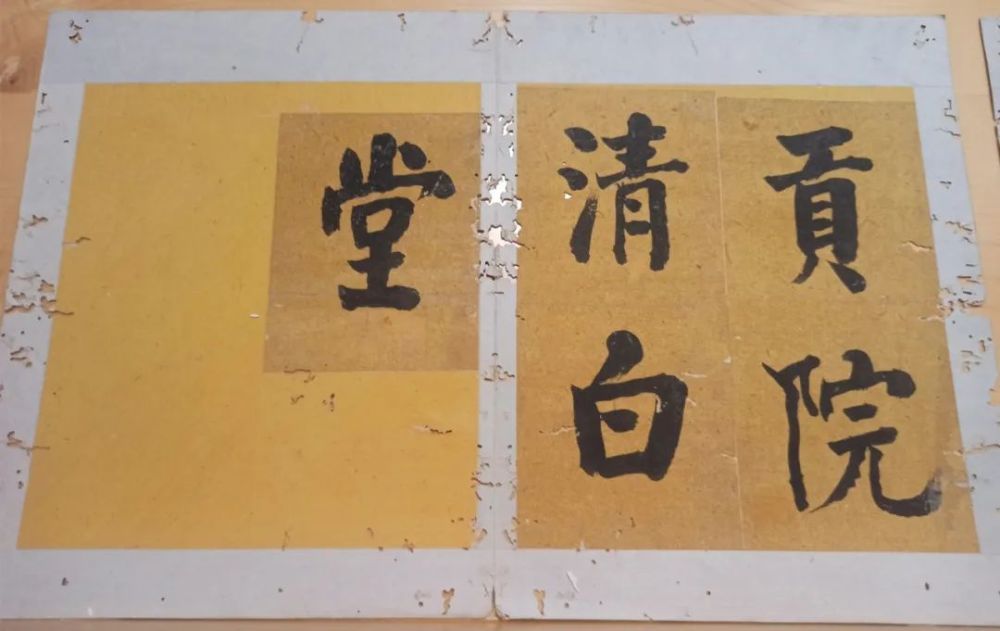 貢院
清白
堂